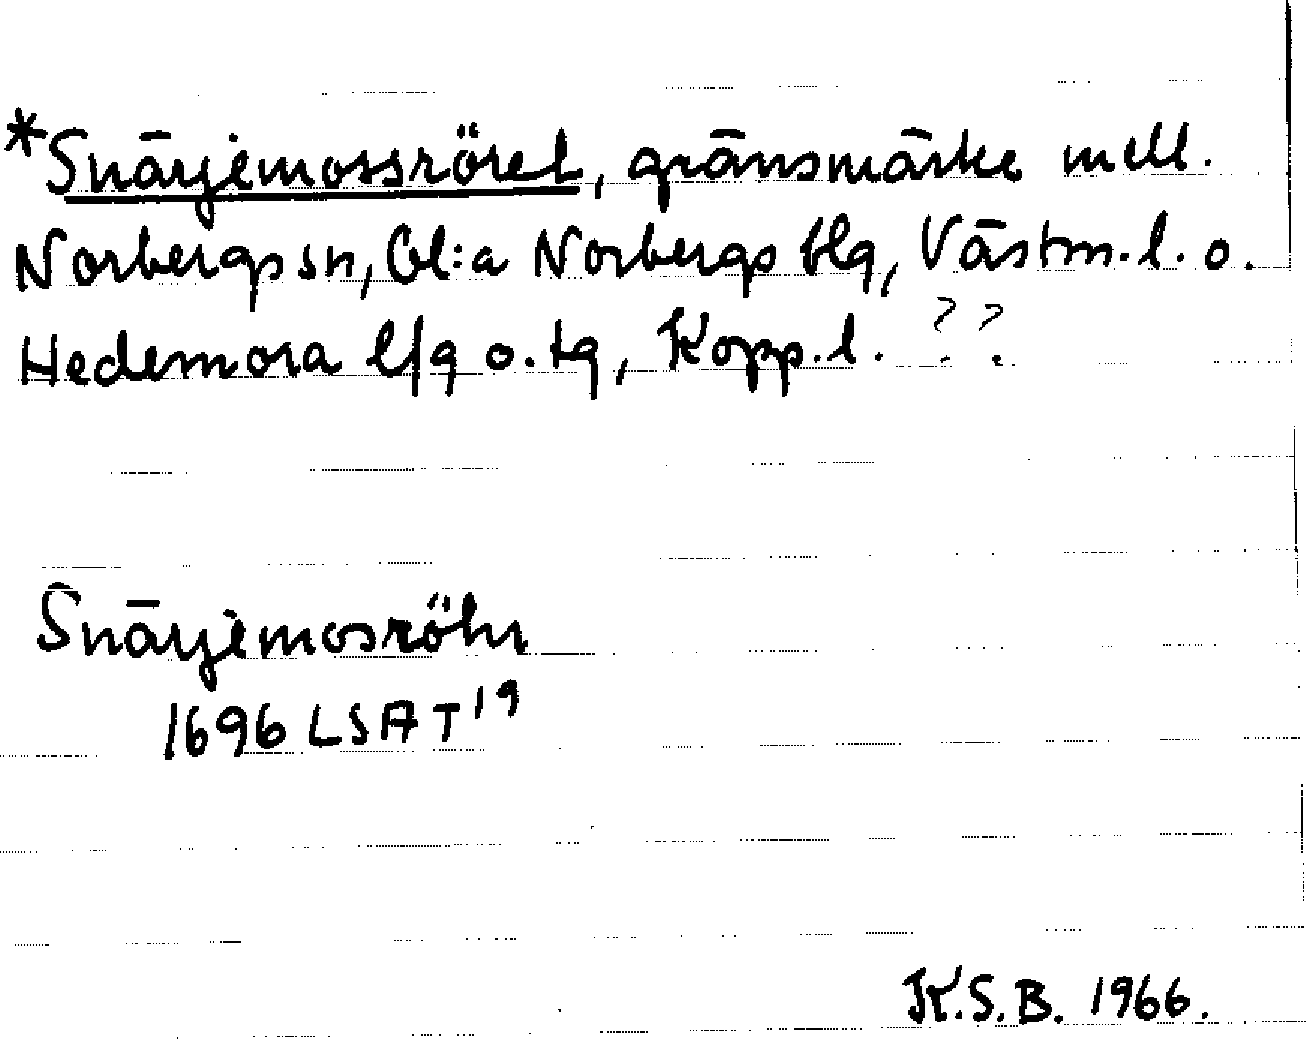 *Snärjemossröset, gränsmärke mell.
Norbergs sn, Gl:a Norbergs blg, Västm. l. o.
Hedemora lfg o. tg, Kopp. l. ? ?
Snärjemosröhr
1696 LSA T 19
K.S.B. 1966.